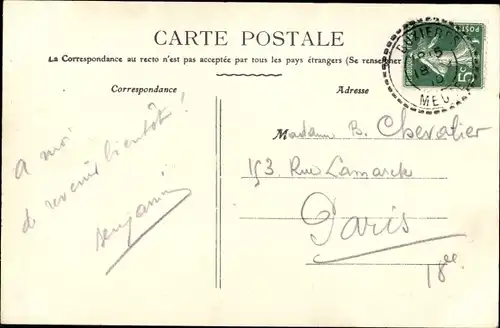 CARTE POSTALE
La Correspondance au recto n'est pas acceptée par tous les pays étrangers (Se renseigner
Correspondance
Adresse
POSTES
5
MEUSE
A moi
de revenir bientôt!
Benjamin
Madame B. Chevalier
153. Rue Lamarck
Paris
18ee